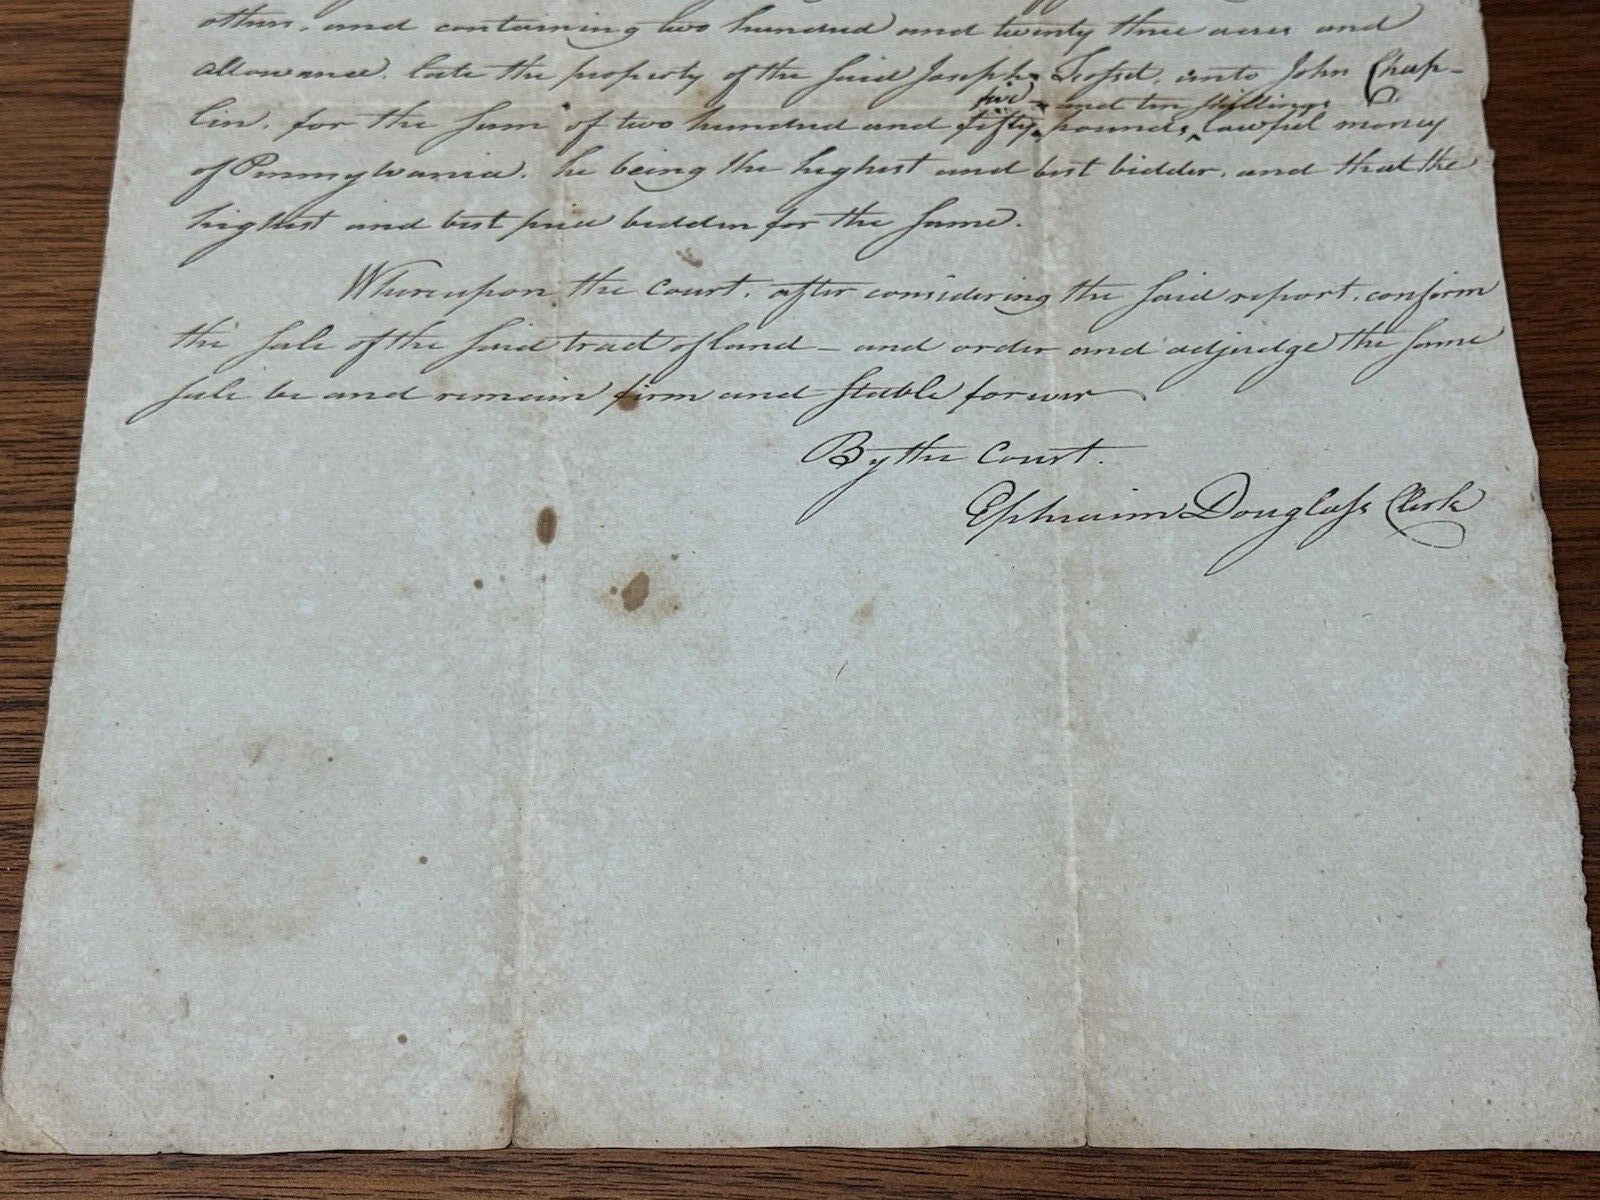 others, and containing two hundred and twenty three acres and
allowance, late the property of the said Joseph Trofset, unto John Chap-
five and ten shillings
lin, for the sum of two hundred and fifty pounds, ‸ lawful money
of Pennsylvania, he being the highest and best bidder, and that the
highest and best price bidden for the same.
Whereupon the Court, after considering the said report, confirm
the sale of the said tract of land — and order and adjudge the same
sale be and remain firm and stable forever
By the Court.
Ephraim Douglass Clerk